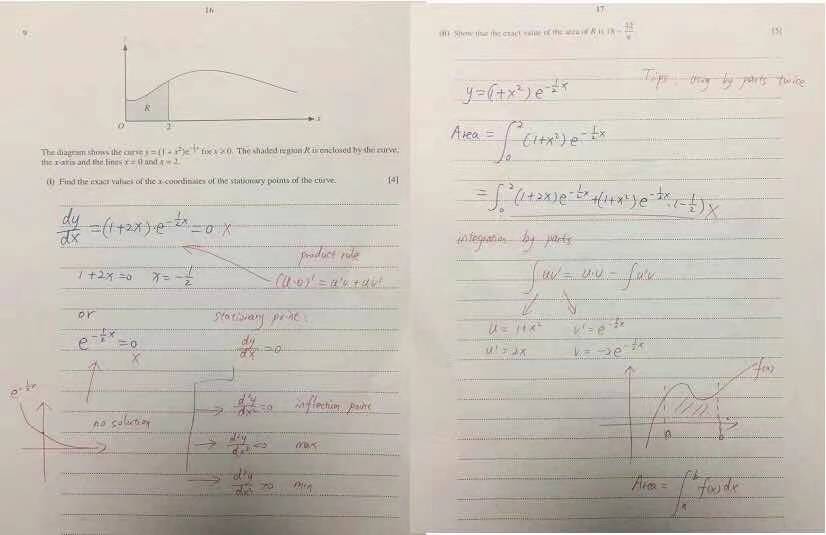 16
9
R
O
2
x
The diagram shows the curve y = (1 + x²)e^{-½x} for x ⩾ 0. The shaded region R is enclosed by the curve,
the x-axis and the lines x = 0 and x = 2.
(i) Find the exact values of the x-coordinates of the stationary points of the curve. [4]
dy/dx = (1+2x)·e^{-½x} = 0 X
product rule
1+2x=0 x = -½
(u·v)' = u'v + uv'
or
stationary point:
e^{-½x} = 0
X
dy/dx = 0
e^{-½x}
no solution
d²y/dx² = 0 inflection point
d²y/dx² <0 max
d²y/dx² >0 min
17
(ii) Show that the exact value of the area of R is 18 − 42/e. [5]
Tips: using by parts twice
y = (1+x²) e^{-½x}
Area = ∫₀² (1+x²) e^{-½x}
= ∫₀² (1+2x)e^{-½x} + (1+x²)e^{-½x}·(-½) X
integration by parts
∫uv' = u·v - ∫u'v
u = 1+x² v' = e^{-½x}
u' = 2x v = -2e^{-½x}
f(x)
a
b
Area = ∫ₐᵇ f(x) dx